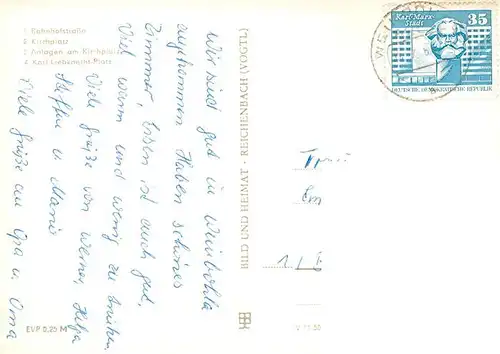 1 Bahnhofstraße
2 Kirchplatz
3 Anlagen am Kirchplatz
4 Karl-Liebknecht-Platz
Wir sind gut in Weinböhla
angekommen. Haben schönes
Zimmer, Essen ist auch gut.
Viel warm und wenig zu trinken.
Viele Grüße von Werner, Helga
Steffen u. Mario
Viele Grüße an Opa u. Oma
EVP 0,25 M
BILD UND HEIMAT · REICHENBACH (VOGTL)
Karl-Marx-
Stadt
35
DEUTSCHE DEMOKRATISCHE REPUBLIK